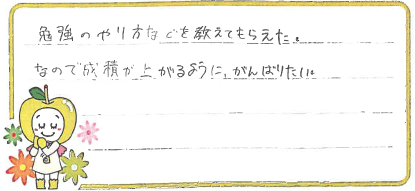 勉強のやり方などを教えてもらえた。
なので成積が上がるように、がんばりたい。